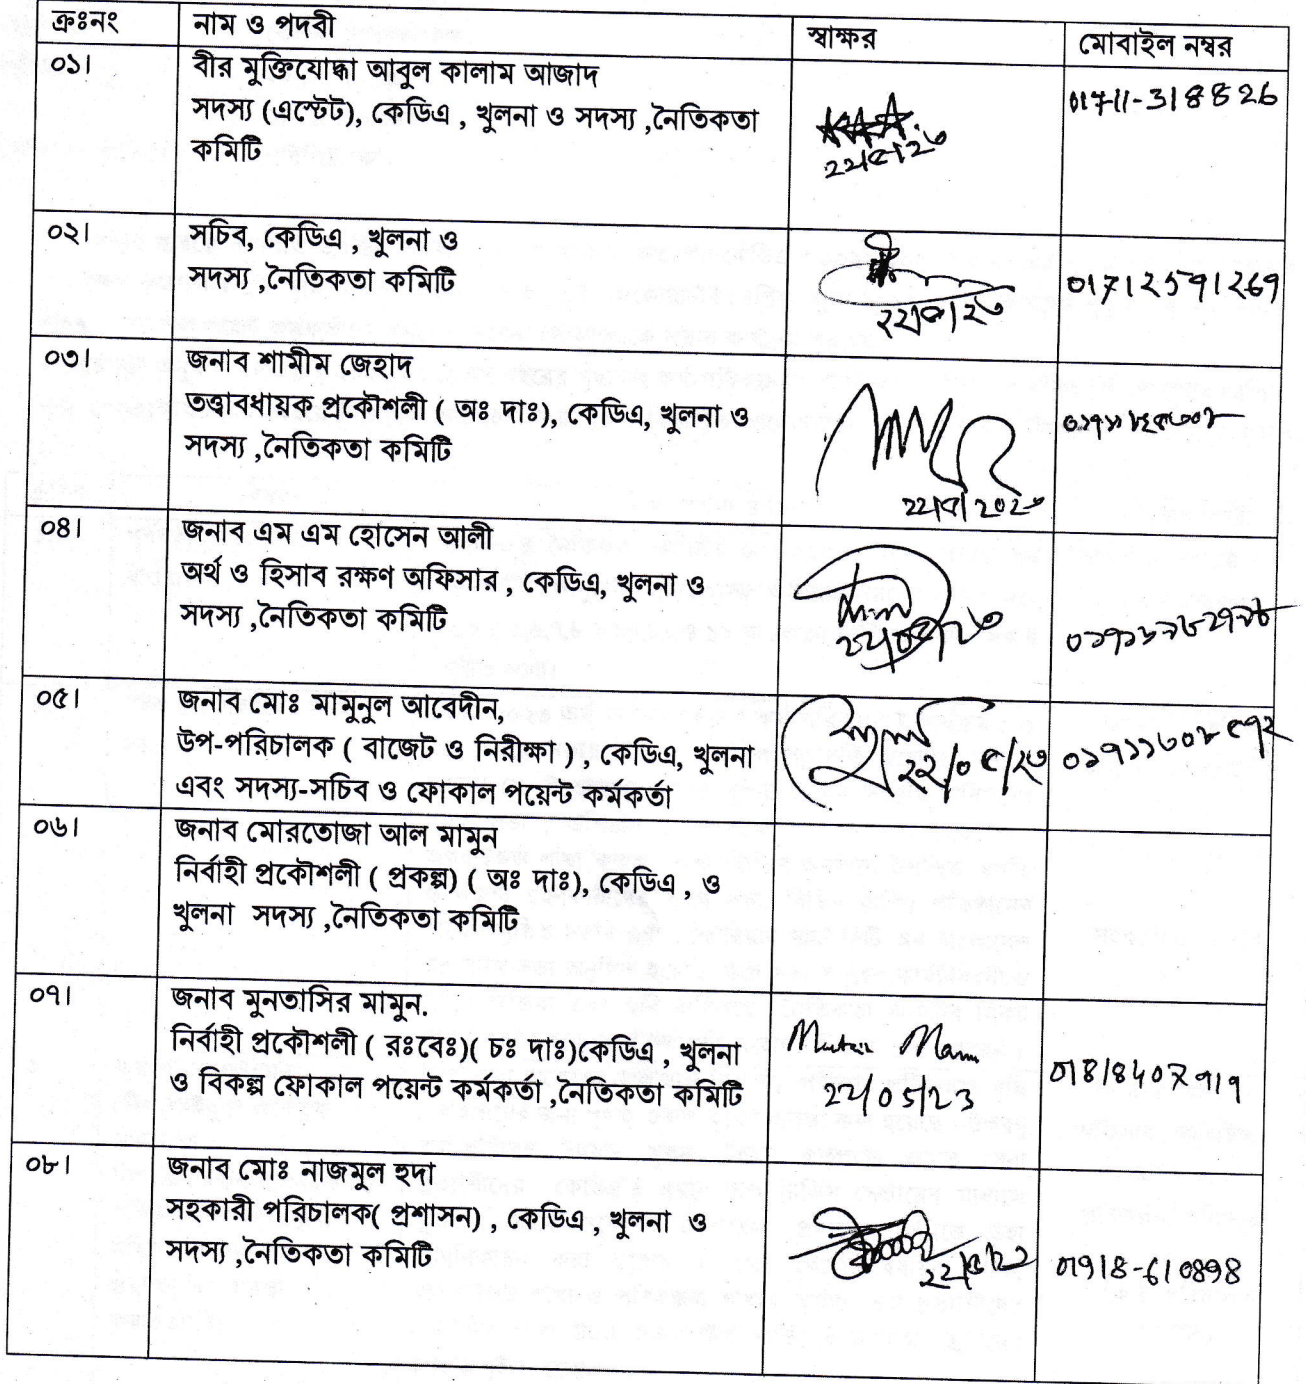 ক্রঃনং নাম ও পদবী স্বাক্ষর মোবাইল নম্বর
০১। বীর মুক্তিযোদ্ধা আবুল কালাম আজাদ
সদস্য (এস্টেট), কেডিএ , খুলনা ও সদস্য ,নৈতিকতা
কমিটি
২২/৫/২৩
01711-318826
০২। সচিব, কেডিএ , খুলনা ও
সদস্য ,নৈতিকতা কমিটি
২২/৫/২৩
01712591269
০৩। জনাব শামীম জেহাদ
তত্ত্বাবধায়ক প্রকৌশলী ( অঃ দাঃ), কেডিএ, খুলনা ও
সদস্য ,নৈতিকতা কমিটি
২২/৫/২০২৩
০৪। জনাব এম এম হোসেন আলী
অর্থ ও হিসাব রক্ষণ অফিসার , কেডিএ, খুলনা ও
সদস্য ,নৈতিকতা কমিটি
২২/০৫/২৩
০৫। জনাব মোঃ মামুনুল আবেদীন,
উপ-পরিচালক ( বাজেট ও নিরীক্ষা ) , কেডিএ, খুলনা
এবং সদস্য-সচিব ও ফোকাল পয়েন্ট কর্মকর্তা
২২/০৫/২৩
০৬। জনাব মোরতোজা আল মামুন
নির্বাহী প্রকৌশলী ( প্রকল্প) ( অঃ দাঃ), কেডিএ , ও
খুলনা সদস্য ,নৈতিকতা কমিটি
০৭। জনাব মুনতাসির মামুন.
নির্বাহী প্রকৌশলী ( রঃবেঃ)( চঃ দাঃ)কেডিএ , খুলনা
ও বিকল্প ফোকাল পয়েন্ট কর্মকর্তা ,নৈতিকতা কমিটি
22/05/23
০৮। জনাব মোঃ নাজমুল হুদা
সহকারী পরিচালক( প্রশাসন) , কেডিএ , খুলনা ও
সদস্য ,নৈতিকতা কমিটি
01918-610898